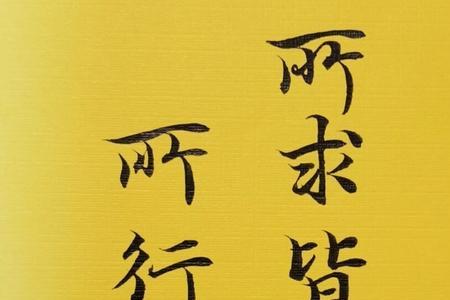 所求皆
所行